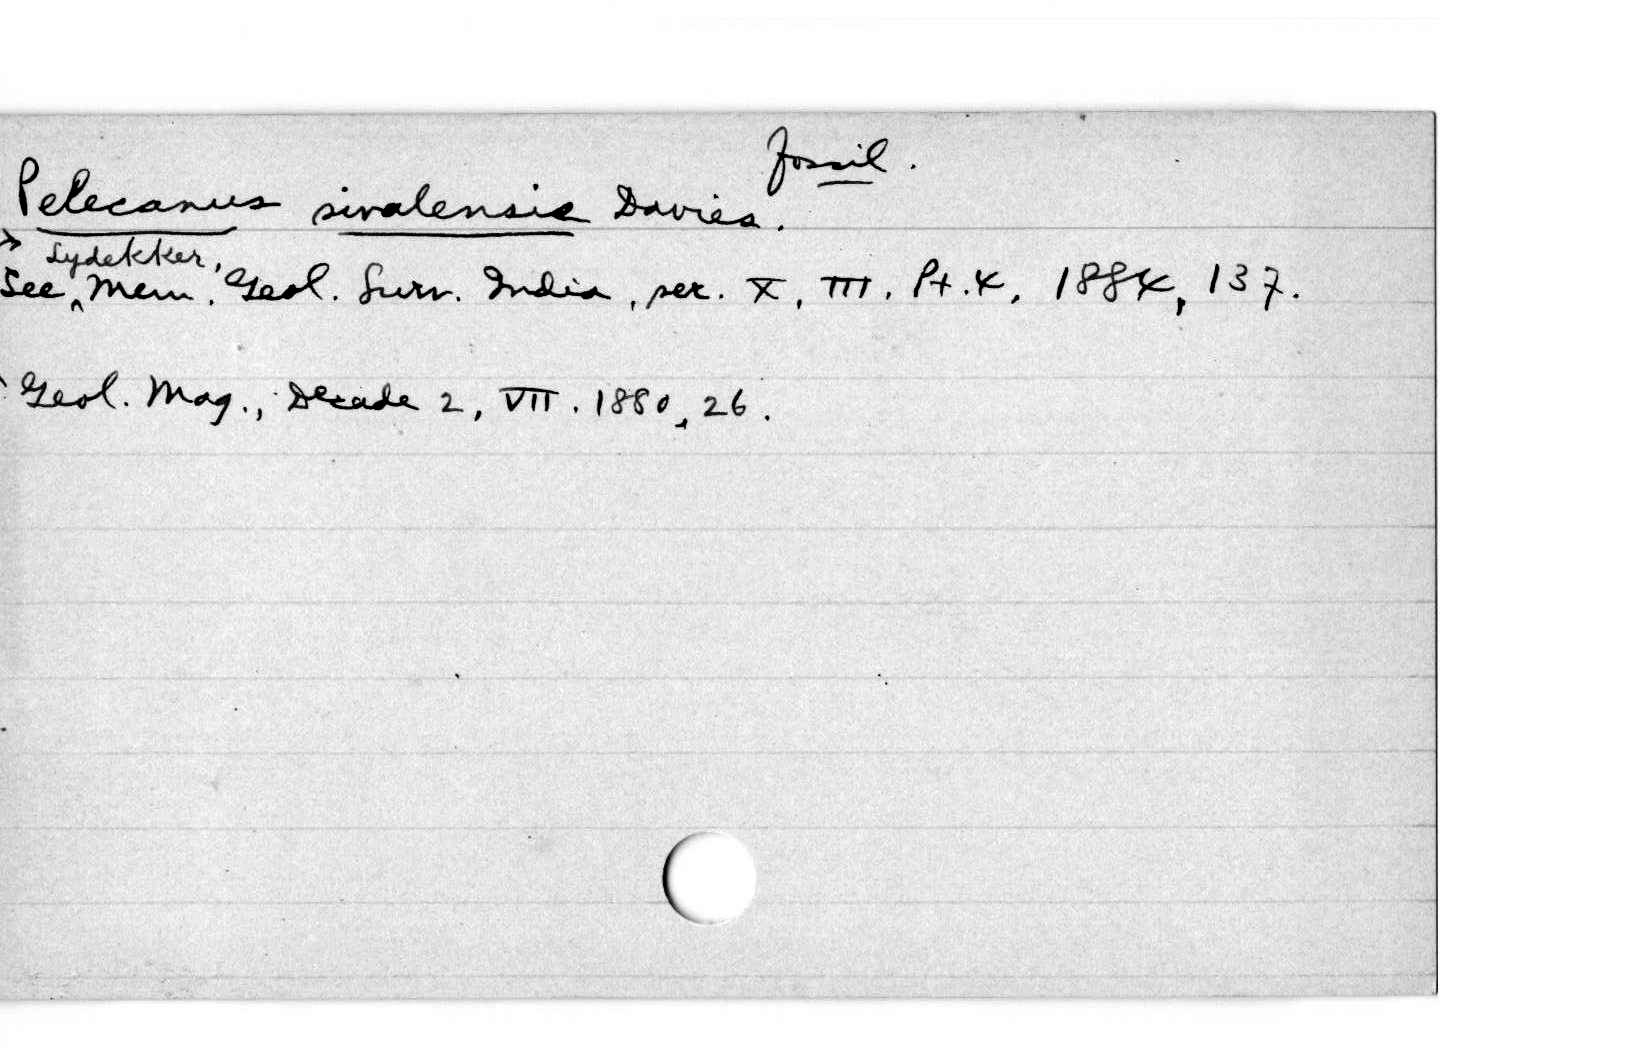 fossil.
Pelecanus sivalensis Davies.
Lydekker,
See ^ Mem. Geol. Surv. India, ser. X, III. Pt. 4, 1884, 137.
Geol. Mag., Decade 2, VII. 1880, 26.